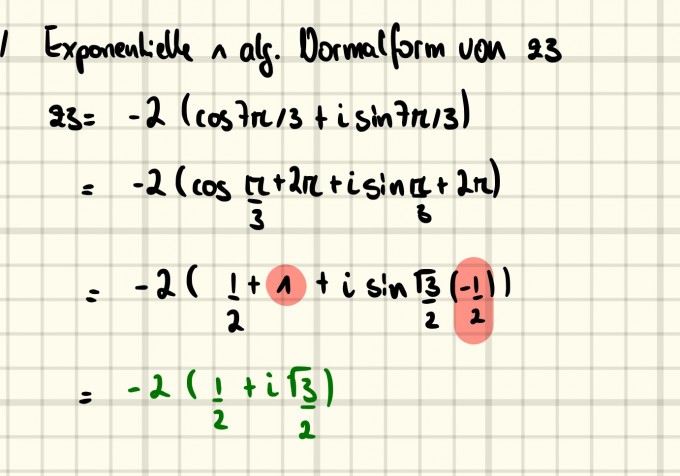 / Exponentielle ∧ alg. Normalform von z3
z3 = -2 (cos 7π/3 + i sin 7π/3)
= -2 (cos π/3 + 2π + i sin π/3 + 2π)
= -2 ( 1/2 + 1 + i sin √3/2 (-1/2))
= -2 ( 1/2 + i √3/2 )